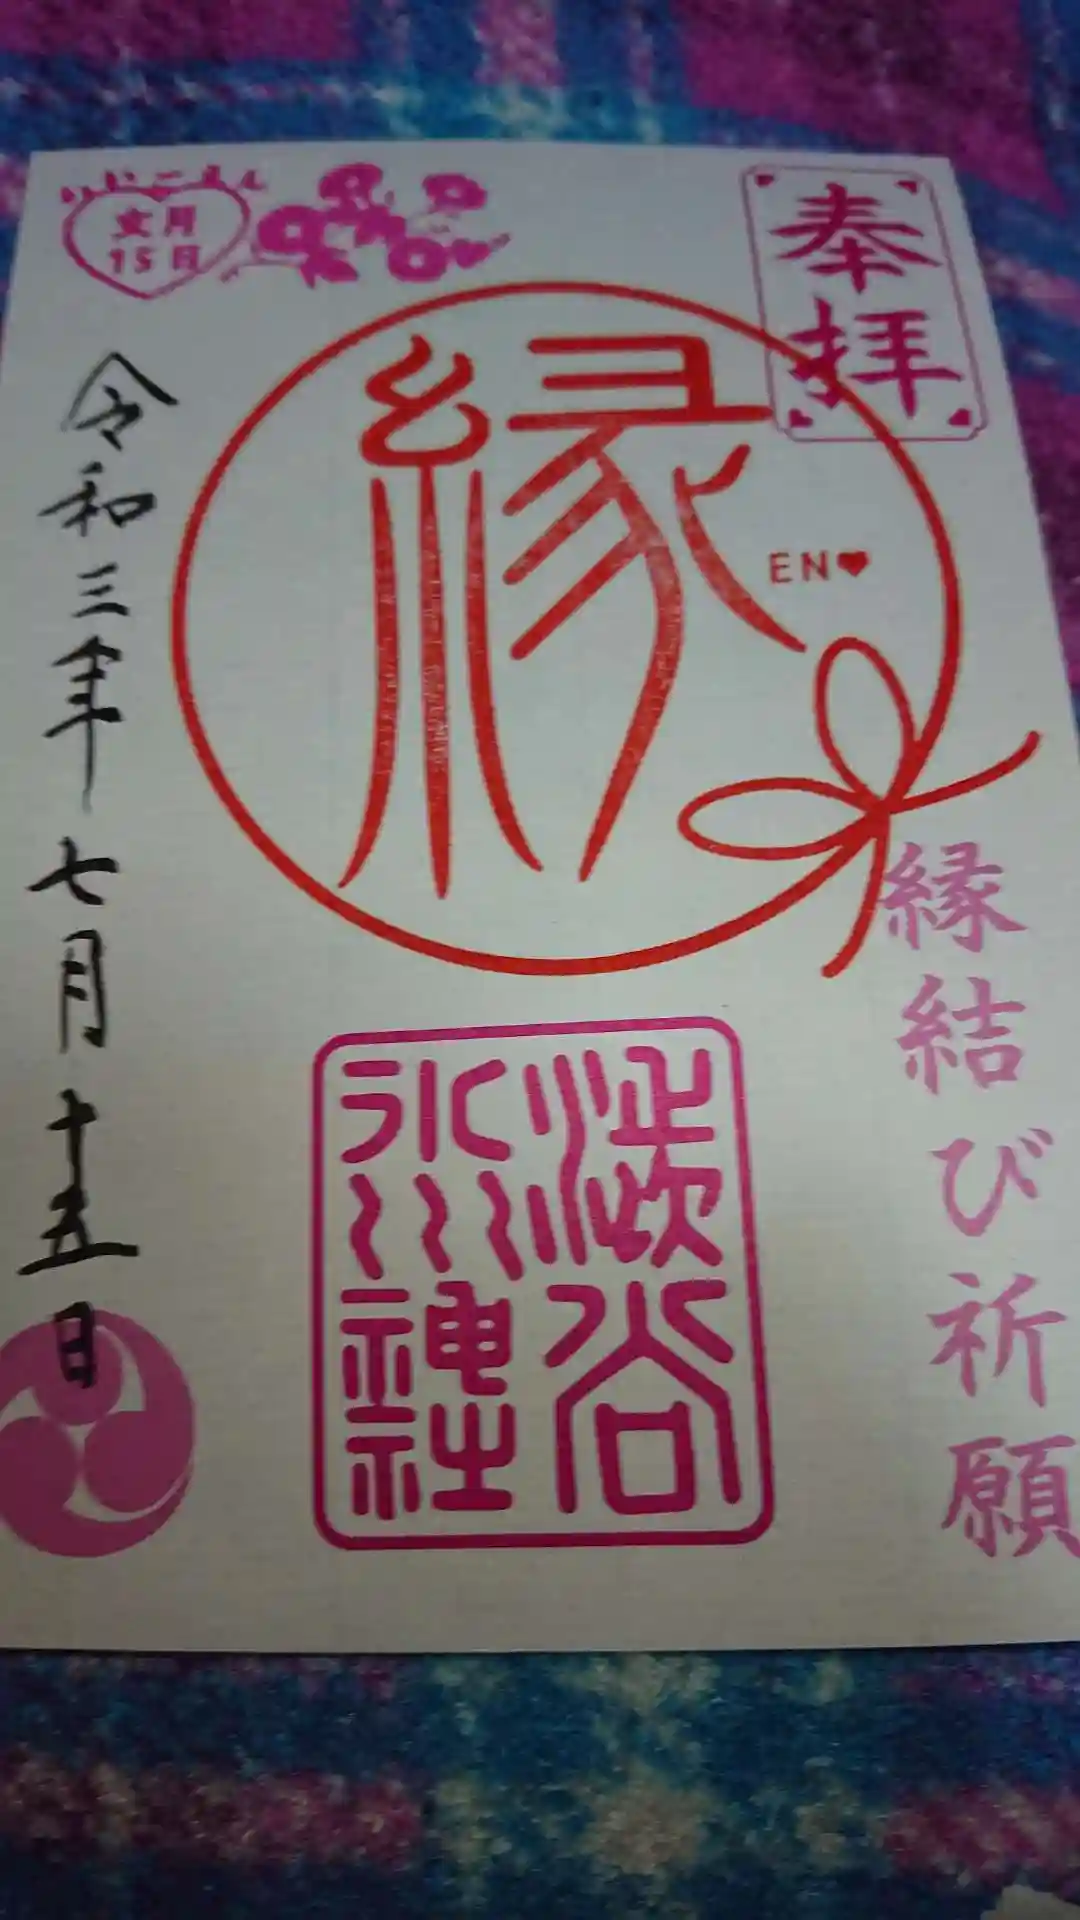 奉拝
縁結び祈願
縁
EN♥
澁谷
氷川神社
いいごえん
文月
15日
令和三年七月十五日